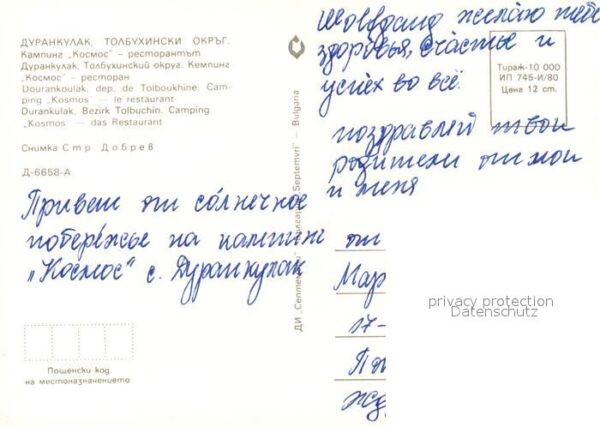 ДУРАНКУЛАК, ТОЛБУХИНСКИ ОКРЪГ.
Кампинг „Космос" – ресторантът
Дуранкулак, Толбухинский округ. Кемпинг
„Космос" – ресторан
Dourankoulak, dep. de Tolboukhine, Cam-
ping „Kosmos" – le restaurant
Durankulak, Bezirk Tolbuchin. Camping
„Kosmos" – das Restaurant
Снимка Стр. Добрев
Д-6658-А
Привет от солнечное
побережье на
„Космос" с. Дуранкулак
Пощенски код
на местоназначението
ДИ „Септември" Septemvri" – Bulgaria
желаю тебе
здоровья, счастье и
успех во всё.
поздравляй твои
родители от мои
и меня
Тираж-10 000
ИП 745-И/80
Цена 12 ст.
от
Мар
17-
privacy protection
Datenschutz